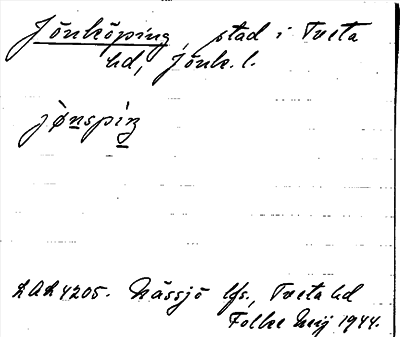 Jönköping, stad i Tveta
hd, Jönk. l.
jø̀nspiŋ
LAL 4205. Nässjö lfs., Tveta hd
Folke 1944.